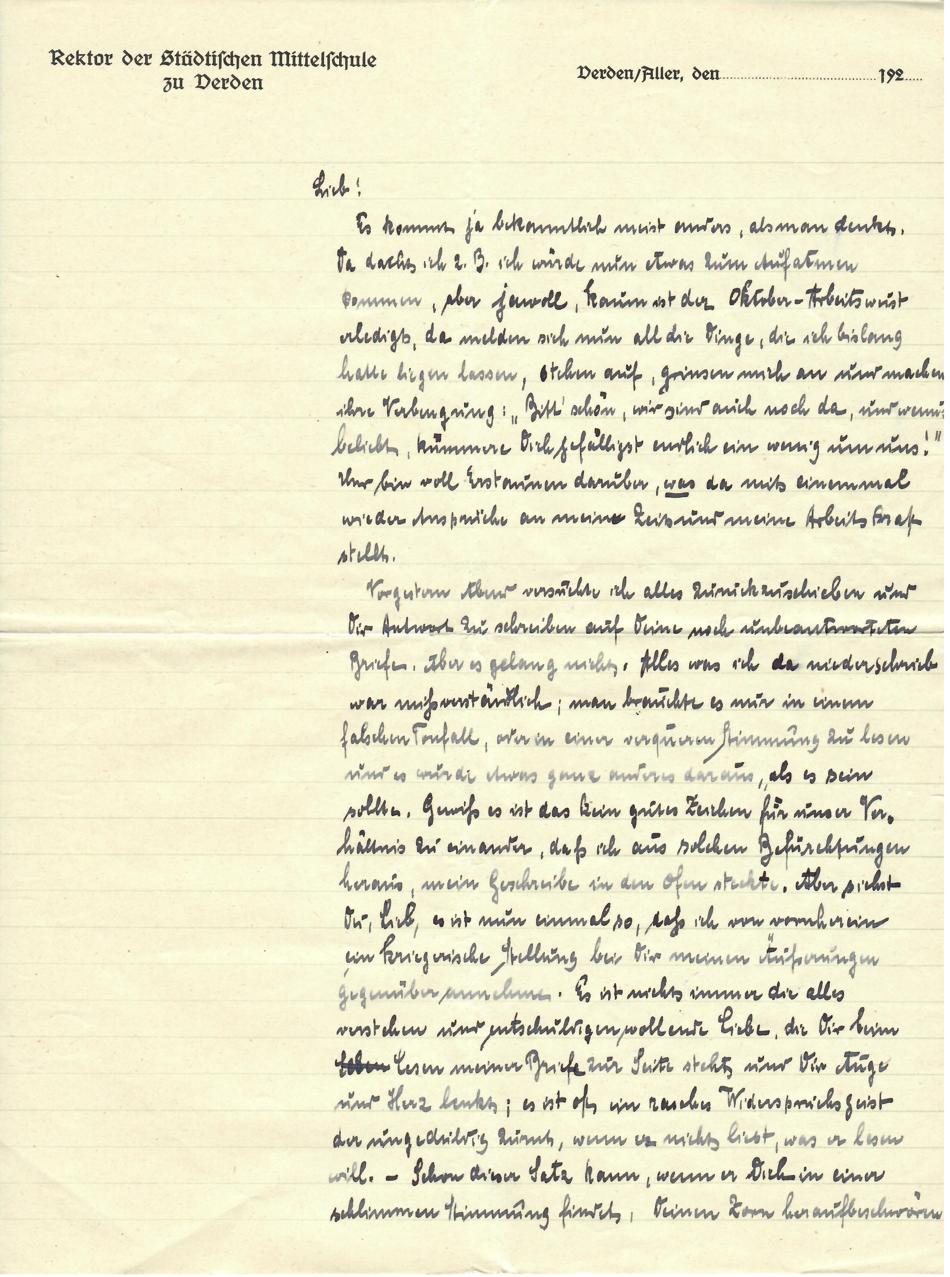 Rektor der Städtischen Mittelschule
zu Verden
Verden/Aller, den 192
Lieb!
Es kommt ja bekanntlich meist anders, als man denkt.
Da dacht ich z. B. ich würde nun etwas zum Aufatmen
kommen, aber jawoll, kaum ist der Oktober-Arbeitswust
erledigt, da melden sich nun all die Dinge, die ich bislang
hatte liegen lassen, stehen auf, grinsen mich an und machen
ihre Verbeugung: „Bitt' schön, wir sind auch noch da, und wenns
beliebt, kümmere Dich gefälligst endlich ein wenig um uns!"
Und bin voll Erstaunen darüber, was da mit einemmal
wieder Ansprüche an meine Zeit und meine Arbeitskraft
stellt.
Vorgestern Abend versuchte ich alles zurückzuschieben und
Dir Antwort zu schreiben auf Deine noch unbeantworteten
Briefe. Aber es gelang nicht. Alles was ich da niederschrieb
war mißverständlich; man brauchte es nur in einem
falschen Tonfall, oder in einer verqueren Stimmung zu lesen
und es wurde etwas ganz anderes daraus, als es sein
sollte. Gewiß es ist das kein gutes Zeichen für unser Ver-
hältnis zu einander, daß ich aus solchen Befürchtungen
heraus, mein Geschreibe in den Ofen steckte. Aber siehst
Du, Lieb, es ist nun einmal so, daß ich von vornherein
ein kriegerische Stellung bei Dir meinen Äußerungen
gegenüber annehme. Es ist nicht immer die alles
verstehen und entschuldigen wollende Liebe, die Dir beim
Lesen meiner Briefe zur Seite steht und Dir Auge
und Herz lenkt; es ist oft ein rasches Widerspruchsgeist
der ungeduldig zürnt, wenn er nicht liest, was er lesen
will. – Schon dieser Satz kann, wenn er Dich in einer
schlimmen Stimmung findet, Deinen Zorn heraufbeschwören